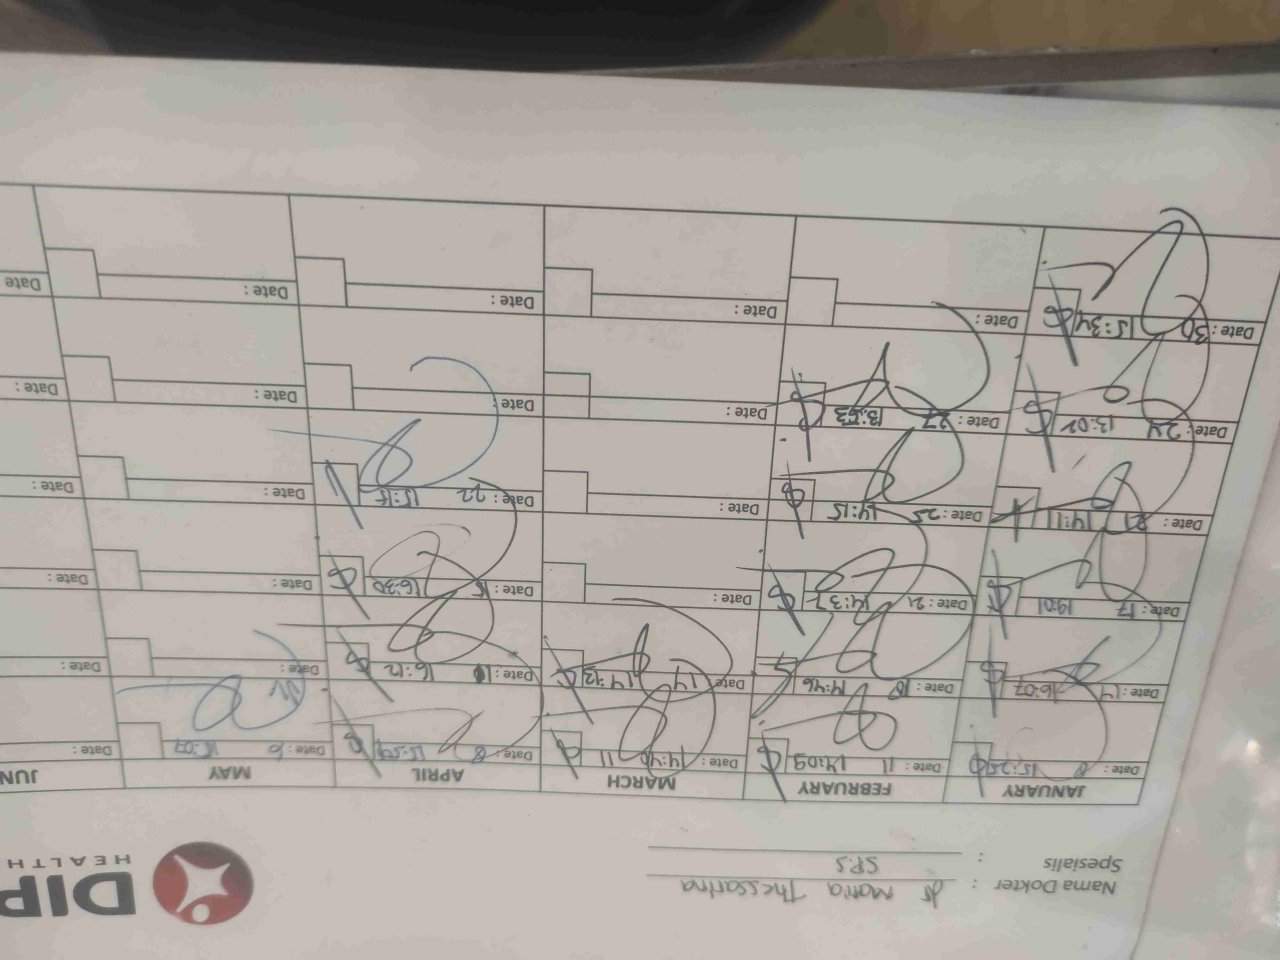 DIP
HEALTH
Nama Dokter : dr Maria Thessarina
Spesialis : SP.S
JANUARY FEBRUARY MARCH APRIL MAY JUN
Date : 8 15:25 Date : 11 14:09 Date : 14:40 11 Date : 8 Date : 6 15:09 Date :
Date : 14 16:07 Date : 18 14:46 Date : 14 14:42 Date : 16:12 Date : Date :
Date : 17 19:01 Date : 21 14:37 Date : Date : 15 16:30 Date : Date :
Date : 21 14:11 Date : 25 14:15 Date : Date : 22 15:15 Date : Date :
Date : 24 13:02 Date : 27 13:53 Date : Date : Date : Date :
Date : 30 15:34 Date : Date : Date : Date : Date